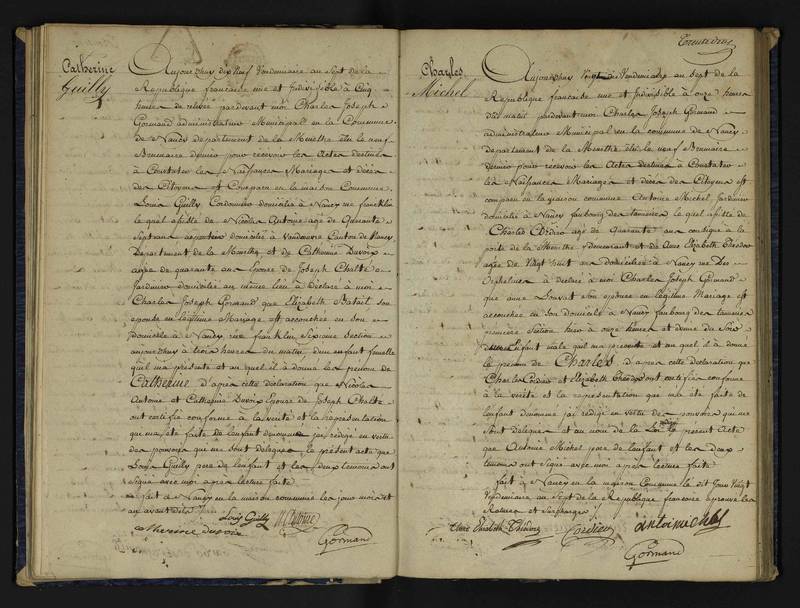 Catherine
Guilly
Aujourd'huy dix neuf Vendemiaire an Sept de la
Republique francaise une et Indivisible à Cinq
heures de relevée pardevant moi Charles Joseph
Gormand administrateur Municipal en la Commune
de Nancy departement de la Meurthe élu le neuf
Brumaire dernier pour recevoir les Actes destinés
à Constater les Naissances Mariages et décès
des Citoyens est Comparu en la maison Commune
Louis Guilly Cordonnier domicilié à Nancy rue franklin
le quel assisté de Nicolas Antoine agé de quarante
Sept ans domicilié à Vandoeuvre Canton de Nancy
Departement de la Meurthe et de Catherine Duvoix
agée de quarante ans Epouse de Joseph
Jardinier domiciliée au même lieu à Déclaré à moi
Charles Joseph Gormand que Elizabeth Batail son
epouse en légitime Mariage est accouchée en son
domicile à Nancy rue franklin Sixieme Section
aujourdhuy à trois heures du matin d'un enfant femelle
quil ma présenté et au quel il à donné les prenoms de
Catherine d'apres cette déclaration que Nicolas
Antoine et Catherine Duvoix Epouse de Joseph
ont certifié conforme à la verité et la représentation
qui ma été faite de lenfant denommé jai rédigé en vertu
des pouvoirs qui me sont délégués le présent acte que
Louis Guilly pere de lenfant et les deux temoins ont
Signé avec moi apres lecture faite
fait à Nancy en la maison commune les jour mois et
an avant dits
Louis Guilly N Antoine
catherine duvoix
Gormand
Trente deux
Charles
Michel
Aujourd'huy Vingt Vendemiaire an Sept de la
Republique francaise une et Indivisible à onze heures
du matin pardevant moi Charles Joseph Gormand
administrateur Municipal en la commune de Nancy
departement de la Meurthe élu le neuf Brumaire
dernier pour recevoir les Actes destinés à Constater
les Naissances Mariages et décès des Citoyens est
comparu en la maison commune Antoine Michel Jardinier
domicilié à Nancy faubourg des tanneries le quel assisté de
Charles Cordier agé de quarante ans consigne à la
porte de la Meurthe y demeurant et de Anne Elizabeth Théodore
agée de Vingt huit ans domiciliée à Nancy rue Des
Orphelines à déclaré à moi Charles Joseph Gormand
que anne Louvat Son epouse en légitime Mariage est
accouchée en Son domicile à Nancy faubourg des tanneries
premiere Section hier à onze heures et demie du Soir
Enfant male quil ma présenté et au quel il à donné
le prenom de Charles d'apres cette déclaration que
Charles Cordier et Elizabeth Théodore ont certifié conforme
à la verité et la représentation qui ma été faite de
lenfant denommé jai rédigé en vertu des pouvoirs qui me
sont délégués et au nom de la Loi le présent Acte
que Antoine Michel pere de lenfant et les deux
temoins ont Signé avec moi apres lecture faite
fait à Nancy en la maison Commune le dit Jour Vingt
Vendemiaire an Sept de la République francaise approuvé les
Ratures et Surcharges
Anne Elisabeth Théodore Cordier antoine michel
Gormand